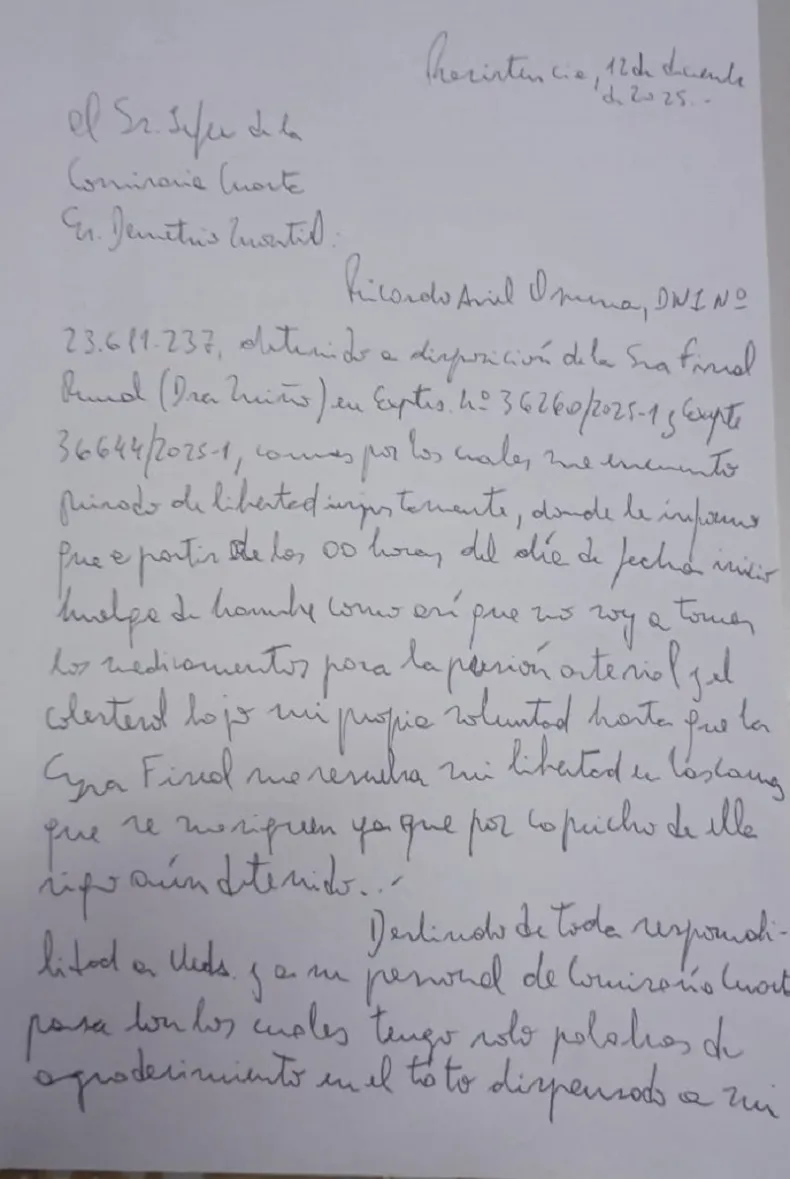 Resistencia, 12 de diciembre
de 2025.-
el Sr. Jefe de la
Comisaria Cuarta
Cr. Demetrio
Ricardo Ariel Osuna, DNI Nº
23.611.237, detenido a disposición de la Sra Fiscal
Rural (Dra Zuiño) en Exptes. nº 36260/2025-1 y Expte
36644/2025-1, causas por los cuales me encuentro
privado de libertad injustamente, donde le informo
que a partir de las 00 horas del día de fecha inicio
huelga de hambre como así que no voy a tomar
los medicamentos para la presión arterial y el
colesterol bajo mi propia voluntad hasta que la
Fiscal me resuelva mi libertad en las causas
que se me siguen ya que por capricho de ella
sigo aún detenido..-
Deslindo de toda responsabi-
lidad a Uds. y a su personal de Comisaría Cuarta
para con los cuales tengo solo palabras de
agradecimiento en el trato dispensado a mi